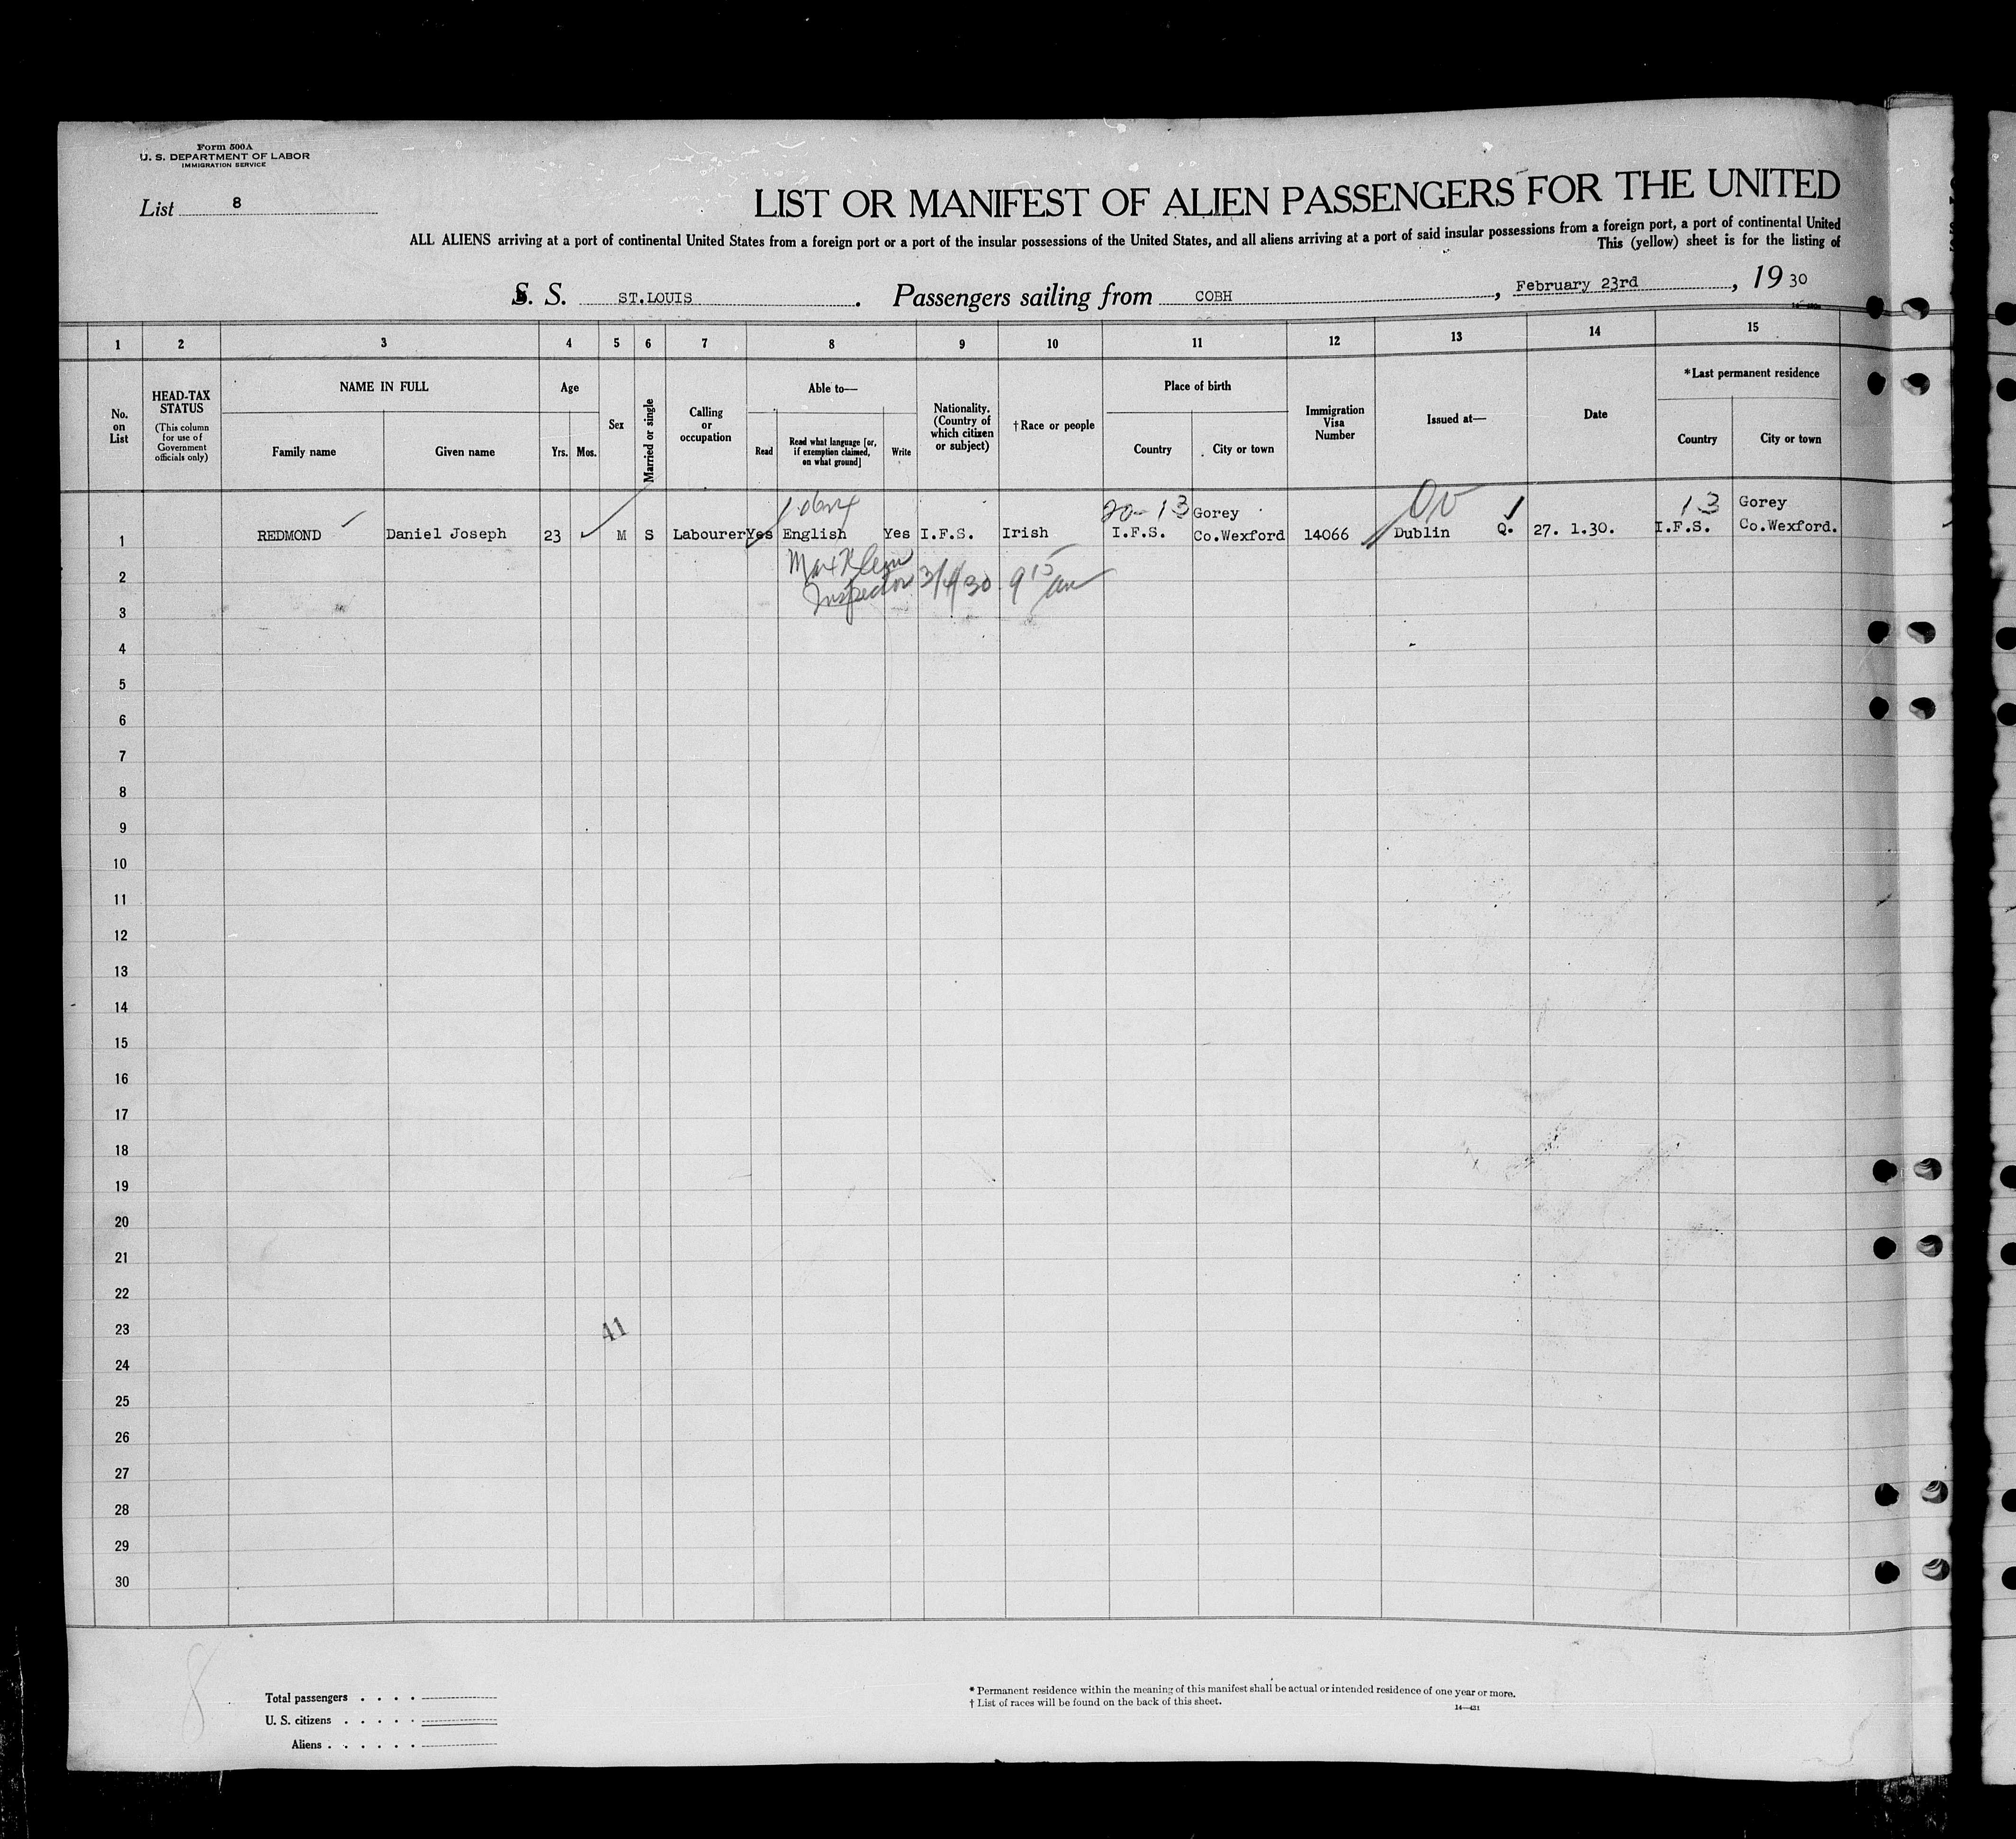 Form 500A
U. S. DEPARTMENT OF LABOR
IMMIGRATION SERVICE
List 8
LIST OR MANIFEST OF ALIEN PASSENGERS FOR THE UNITED
ALL ALIENS arriving at a port of continental United States from a foreign port or a port of the insular possessions of the United States, and all aliens arriving at a port of said insular possessions from a foreign port, a port of continental United
This (yellow) sheet is for the listing of
S. S. ST.LOUIS. Passengers sailing from COBH, February 23rd, 19 30
1 2 3 4 5 6 7 8 9 10 11 12 13 14 15
No. on List
HEAD-TAX STATUS
(This column for use of Government officials only)
NAME IN FULL
Family name
Given name
Age
Yrs.
Mos.
Sex
Married or single
Calling or occupation
Able to—
Read
Read what language [or, if exemption claimed, on what ground]
Write
Nationality. (Country of which citizen or subject)
†Race or people
Place of birth
Country
City or town
Immigration Visa Number
Issued at—
Date
*Last permanent residence
Country
City or town
20-13 Gorey 13 Gorey
1 REDMOND Daniel Joseph 23 M S Labourer Yes English Yes I.F.S. Irish I.F.S. Co.Wexford 14066 Dublin Q. 27. 1.30. I.F.S. Co.Wexford.
Max Klein
2 Inspector 3/4/30 9 15 am
3
4
5
6
7
8
9
10
11
12
13
14
15
16
17
18
19
20
21
22
23 41
24
25
26
27
28
29
30
8
Total passengers . . . .
U. S. citizens . . . . .
Aliens . . . . . .
* Permanent residence within the meaning of this manifest shall be actual or intended residence of one year or more.
† List of races will be found on the back of this sheet.
14—431